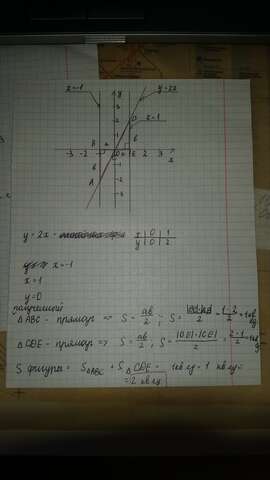 x=-1
y
y=2x
3
2
D
x=1
B
a
b
-3 -2 0 1 E 2 3
x
A
y = 2x -
x 0 1
y 0 2
x = -1
x = 1
y = 0
△ABC - прямоуг => S = ab/2, S = /2 = 1·2/2 = 1 кв ед
△CDE - прямоуг => S = ab/2, S = |DE|·|CE|/2 = 2·1/2 = 1 кв ед
S фигуры = S△ABC + S△CDE = 1 кв ед + 1 кв ед =
= 2 кв ед